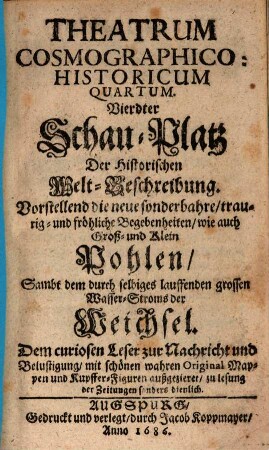 THEATRUM
COSMOGRAPHICO-
HISTORICUM
QUARTUM.
Vierdter
Schau-Platz
Der Historischen
Welt-Beschreibung.
Vorstellend die neue sonderbahre/ trau-
rig- und fröhliche Begebenheiten/ wie auch
Groß- und Klein
Pohlen/
Sambt dem durch selbiges lauffenden grossen
Wasser-Stroms der
Weichsel.
Dem curiosen Leser zur Nachricht und
Belustigung/ mit schönen wahren Original Map-
pen und Kupffer-Figuren außgezieret/ zu lesung
der Zeitungen sonders dienlich.
AUGSPURG/
Gedruckt und verlegt/ durch Jacob Koppmayer/
Anno 1686.